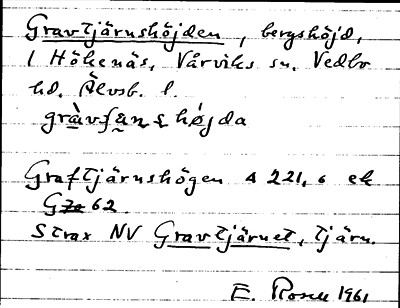 Gravtjärnshöjden, bergshöjd,
l Hökenäs, Vårviks sn. Vedbo
hd. Älvsb. l.
Graftjärnshögen 4 221,6 ek
G 62
Strax NV Gravtjärnet, tjärn.
E. Rosell 1961